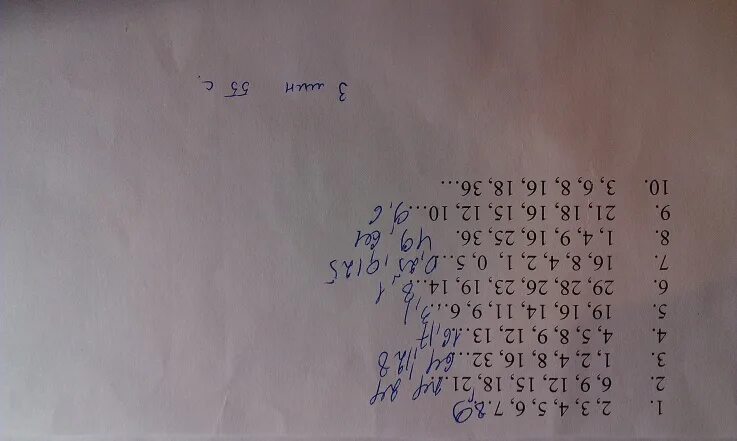 1. 2, 3, 4, 5, 6, 7... 8 9
2. 6, 9, 12, 15, 18, 21.... 24
3. 1, 2, 4, 8, 16, 32... 64, 128
4. 4, 5, 8, 9, 12, 13... 16, 17
5. 19, 16, 14, 11, 9, 6... 3, 1
6. 29, 28, 26, 23, 19, 14... 8, 1
7. 16, 8, 4, 2, 1, 0, 5... 0,25, 0,125
8. 1, 4, 9, 16, 25, 36. 49, 64
9. 21, 18, 16, 15, 12, 10... 9, 6
10. 3, 6, 8, 16, 18, 36...
3 мин 55 с.